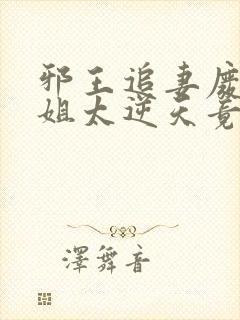 邪王追妻废
姐太逆天竟
澤舞音